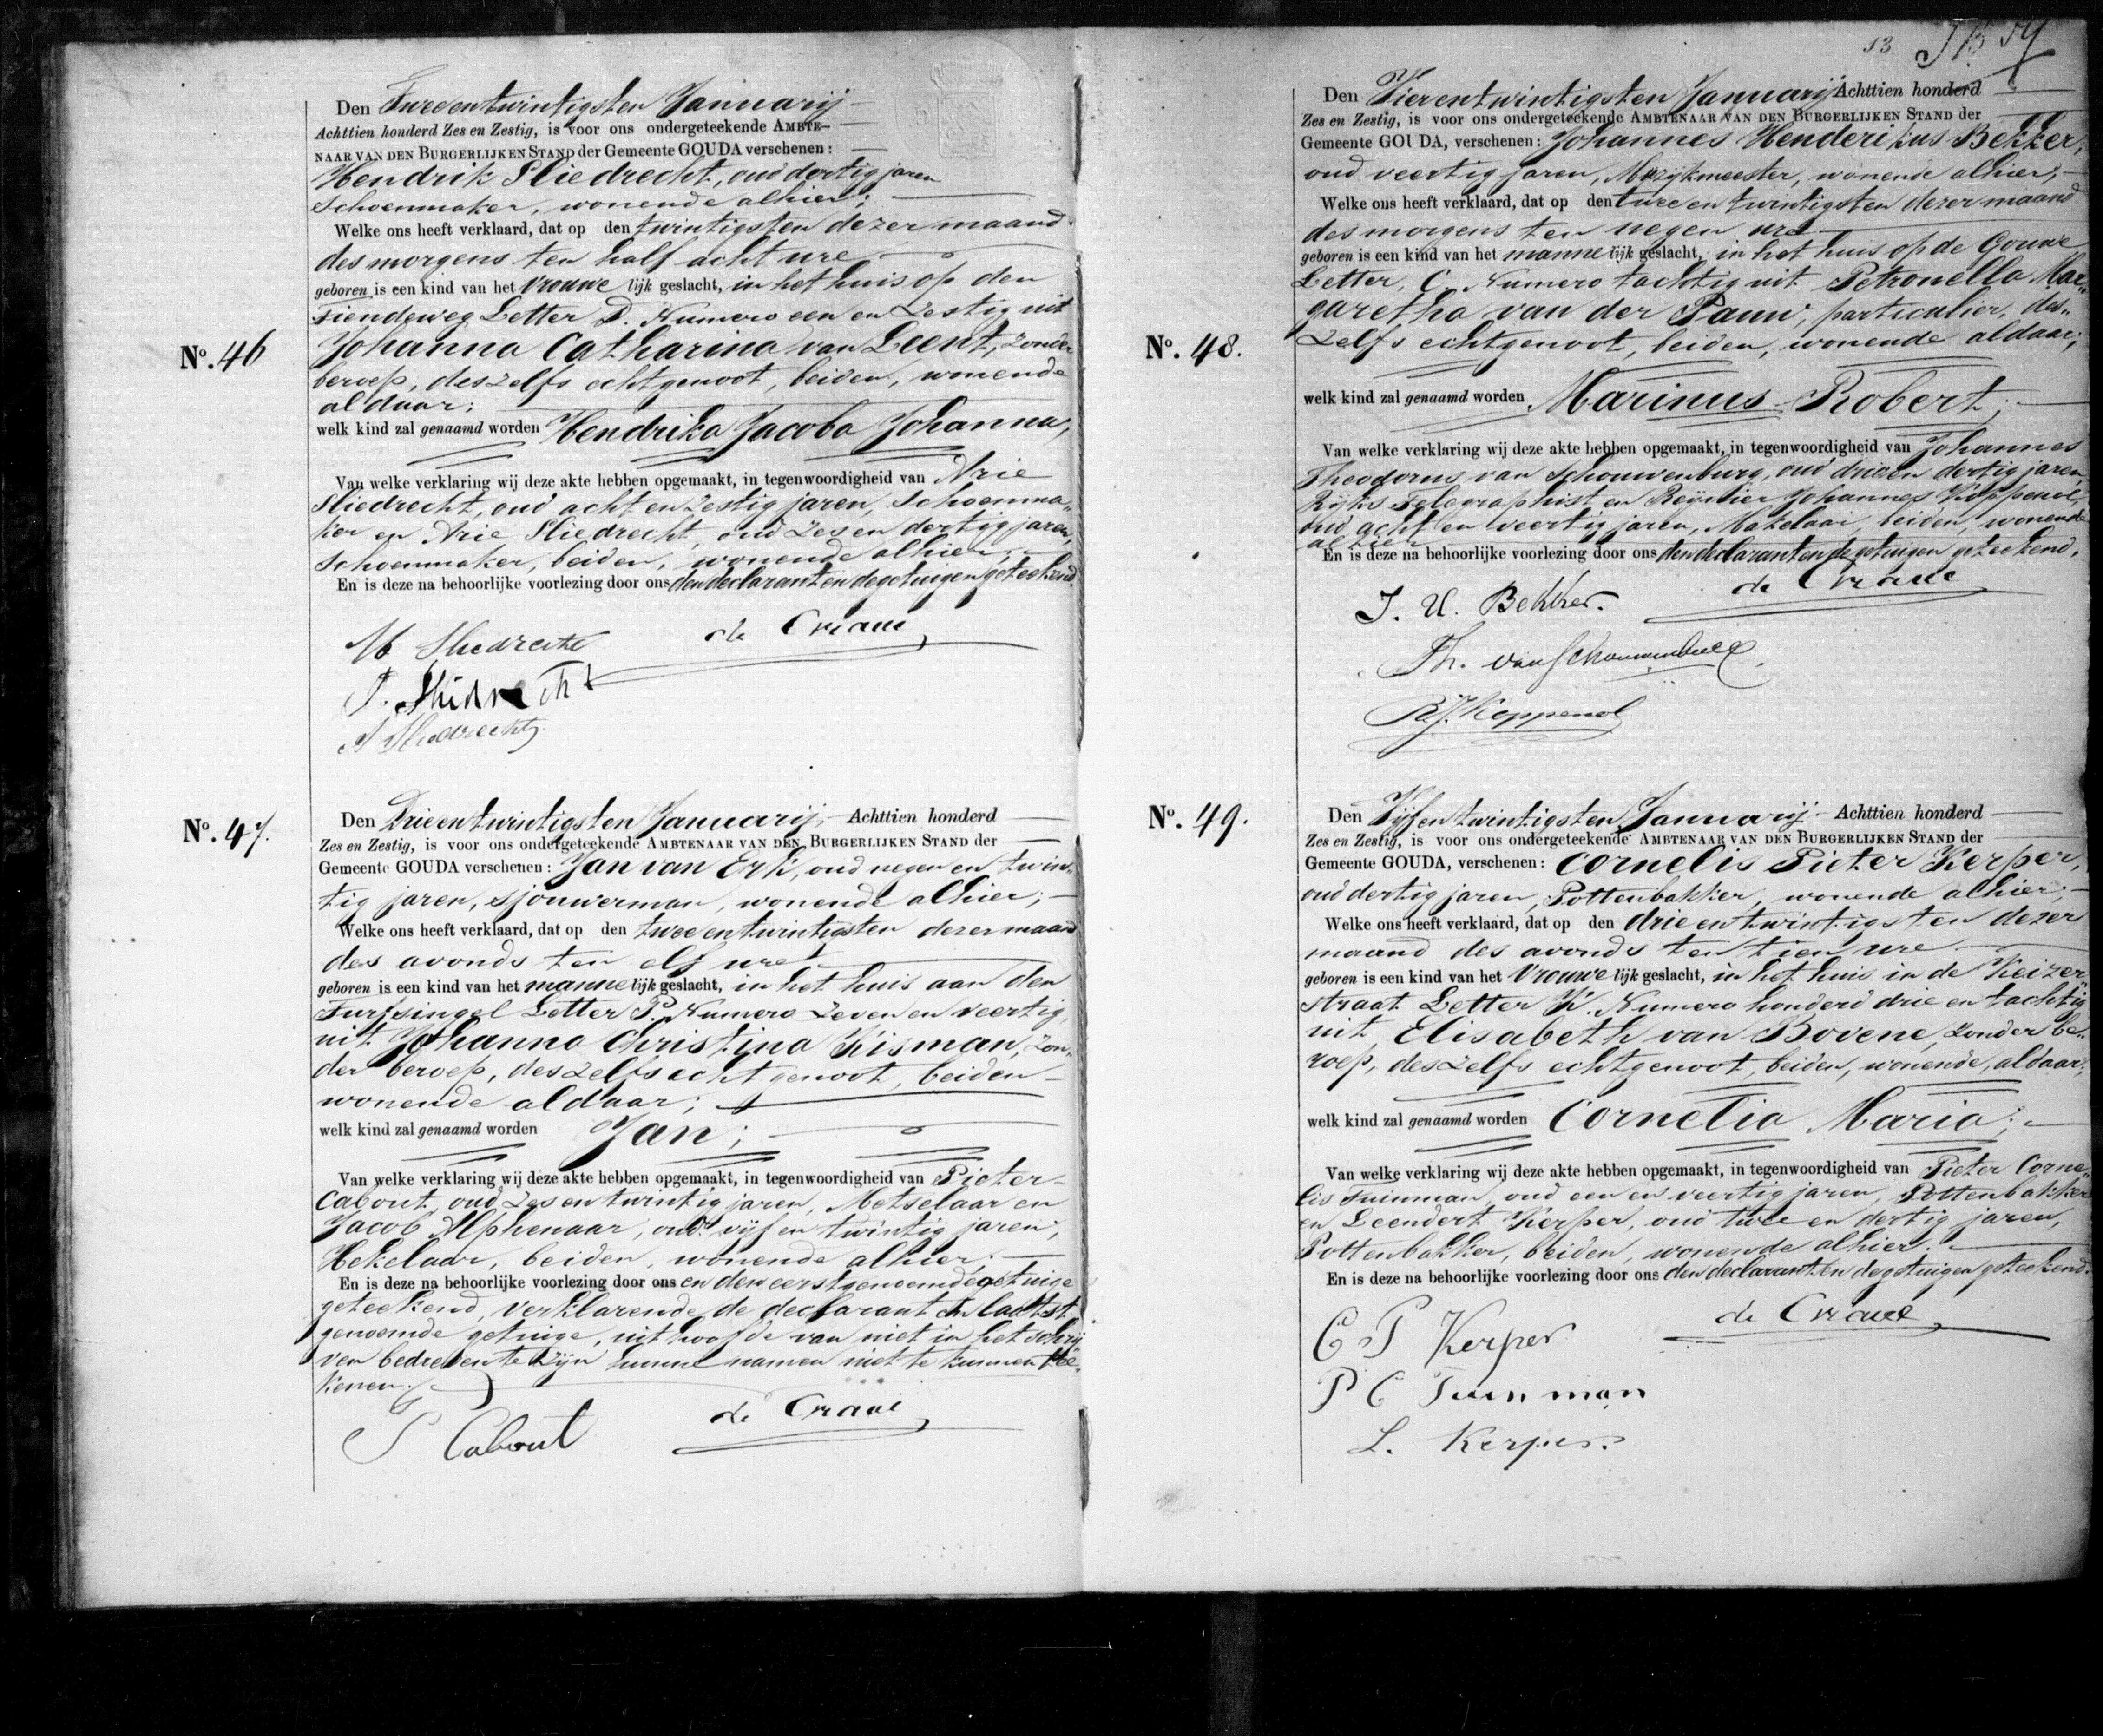 Den Tweeentwintigsten Januarij
Achttien honderd Zes en Zestig, is voor ons ondergeteekende AMBTE-
NAAR VAN DEN BURGERLIJKEN STAND der Gemeente GOUDA verschenen:
Hendrik Sliedrecht, oud dertig jaren
Schoenmaker, wonende alhier;
Welke ons heeft verklaard, dat op den twintigsten dezer maand
des morgens ten half acht ure
geboren is een kind van het vrouwelijk geslacht, in het huis op den
Tiendeweg Letter D. Numero een en Zestig uit
No. 46
Johanna Catharina van Leent, zonder
beroep, deszelfs echtgenoot, beiden, wonende
aldaar;
welk kind zal genaamd worden Hendrika Jacoba Johanna,
Van welke verklaring wij deze akte hebben opgemaakt, in tegenwoordigheid van Arie
Sliedrecht, oud acht en Zestig jaren, Schoenma„
ker en Arie Sliedrecht, oud Zes en dertig jaren,
Schoenmaker, beiden, wonende alhier.
En is deze na behoorlijke voorlezing door ons den declarant en de getuigen geteekend.
H Sliedrecht de Craau
A. Sliedrecht
A Sliedrecht
No. 47.
Den Drieentwintigsten Januarij, Achttien honderd
Zes en Zestig, is voor ons ondergeteekende AMBTENAAR VAN DEN BURGERLIJKEN STAND der
Gemeente GOUDA verschenen: Jan van Erk, oud negen en twin„
tig jaren, sjouwerman, wonende alhier;
Welke ons heeft verklaard, dat op den tweeentwintigsten dezer maand
des avonds ten elf ure
geboren is een kind van het mannelijk geslacht, in het huis aan den
Turfsingel Letter P. Numero Zeven en veertig,
uit Johanna Christina Kisman, zon„
der beroep, deszelfs echtgenoot, beiden
wonende aldaar;
welk kind zal genaamd worden Jan;
Van welke verklaring wij deze akte hebben opgemaakt, in tegenwoordigheid van Pieter
Cabout, oud Zes en twintig jaren, Metselaar en
Jacob Alphenaar, oud vijf en twintig jaren,
Hekelaar, beiden, wonende alhier.
En is deze na behoorlijke voorlezing door ons en den eerstgenoemde getuige
geteekend, verklarende de declarant en laatst
genoemde getuige, uit hoofde van niet in het schrij
ven bedreven te zijn hunne namen niet te kunnen tee„
kenen.
P Cabout de Craau
13
Den Vierentwintigsten Januarij Achttien honderd
Zes en Zestig, is voor ons ondergeteekende AMBTENAAR VAN DEN BURGERLIJKEN STAND der
Gemeente GOUDA, verschenen: Johannes Henderikus Bekker,
oud veertig jaren, Muzijkmeester, wonende alhier,
Welke ons heeft verklaard, dat op den tweeentwintigsten dezer maand
des morgens ten negen ure
geboren is een kind van het mannelijk geslacht, in het huis op de Gouwe
Letter, C. Numero tachtig uit Petronella Mar„
garetha van der Pauw, particulier, des„
No. 48.
zelfs echtgenoot, beiden, wonende aldaar;
welk kind zal genaamd worden Marinus Robert;
Van welke verklaring wij deze akte hebben opgemaakt, in tegenwoordigheid van Johannes
Theodorus van Schouwenburg, oud drieen dertig jaren,
Rijks Telegraphist en Reijnier Johannes Koppenol,
oud acht en veertig jaren, Makelaar, beiden, wonende
alhier
En is deze na behoorlijke voorlezing door ons den declarant en de getuigen geteekend.
J. H. Bekker. de Craau
Th. van Schouwenburg
R J. Koppenol
No. 49.
Den Vijfentwintigsten Januarij Achttien honderd
Zes en Zestig, is voor ons ondergeteekende AMBTENAAR VAN DEN BURGERLIJKEN STAND der
Gemeente GOUDA, verschenen: Cornelis Pieter Kerper,
oud dertig jaren, Pottenbakker, wonende alhier;
Welke ons heeft verklaard, dat op den drieentwintigsten dezer
maand des avonds ten tien ure
geboren is een kind van het vrouwelijk geslacht, in het huis in de Keizer
straat Letter K. Numero honderd drie en tachtig
uit Elisabeth van Bovene, zonder be„
roep, deszelfs echtgenoot, beiden, wonende, aldaar;
welk kind zal genaamd worden Cornelia Maria;
Van welke verklaring wij deze akte hebben opgemaakt, in tegenwoordigheid van Pieter Corne„
lis Tuinman, oud een en veertig jaren, Pottenbakker
en Leendert Kerper, oud twee en dertig jaren,
Pottenbakker, beiden, wonende alhier.
En is deze na behoorlijke voorlezing door ons den declarant en de getuigen geteekend.
C P Kerper de Craau
P C Tuinman
L. Kerper.